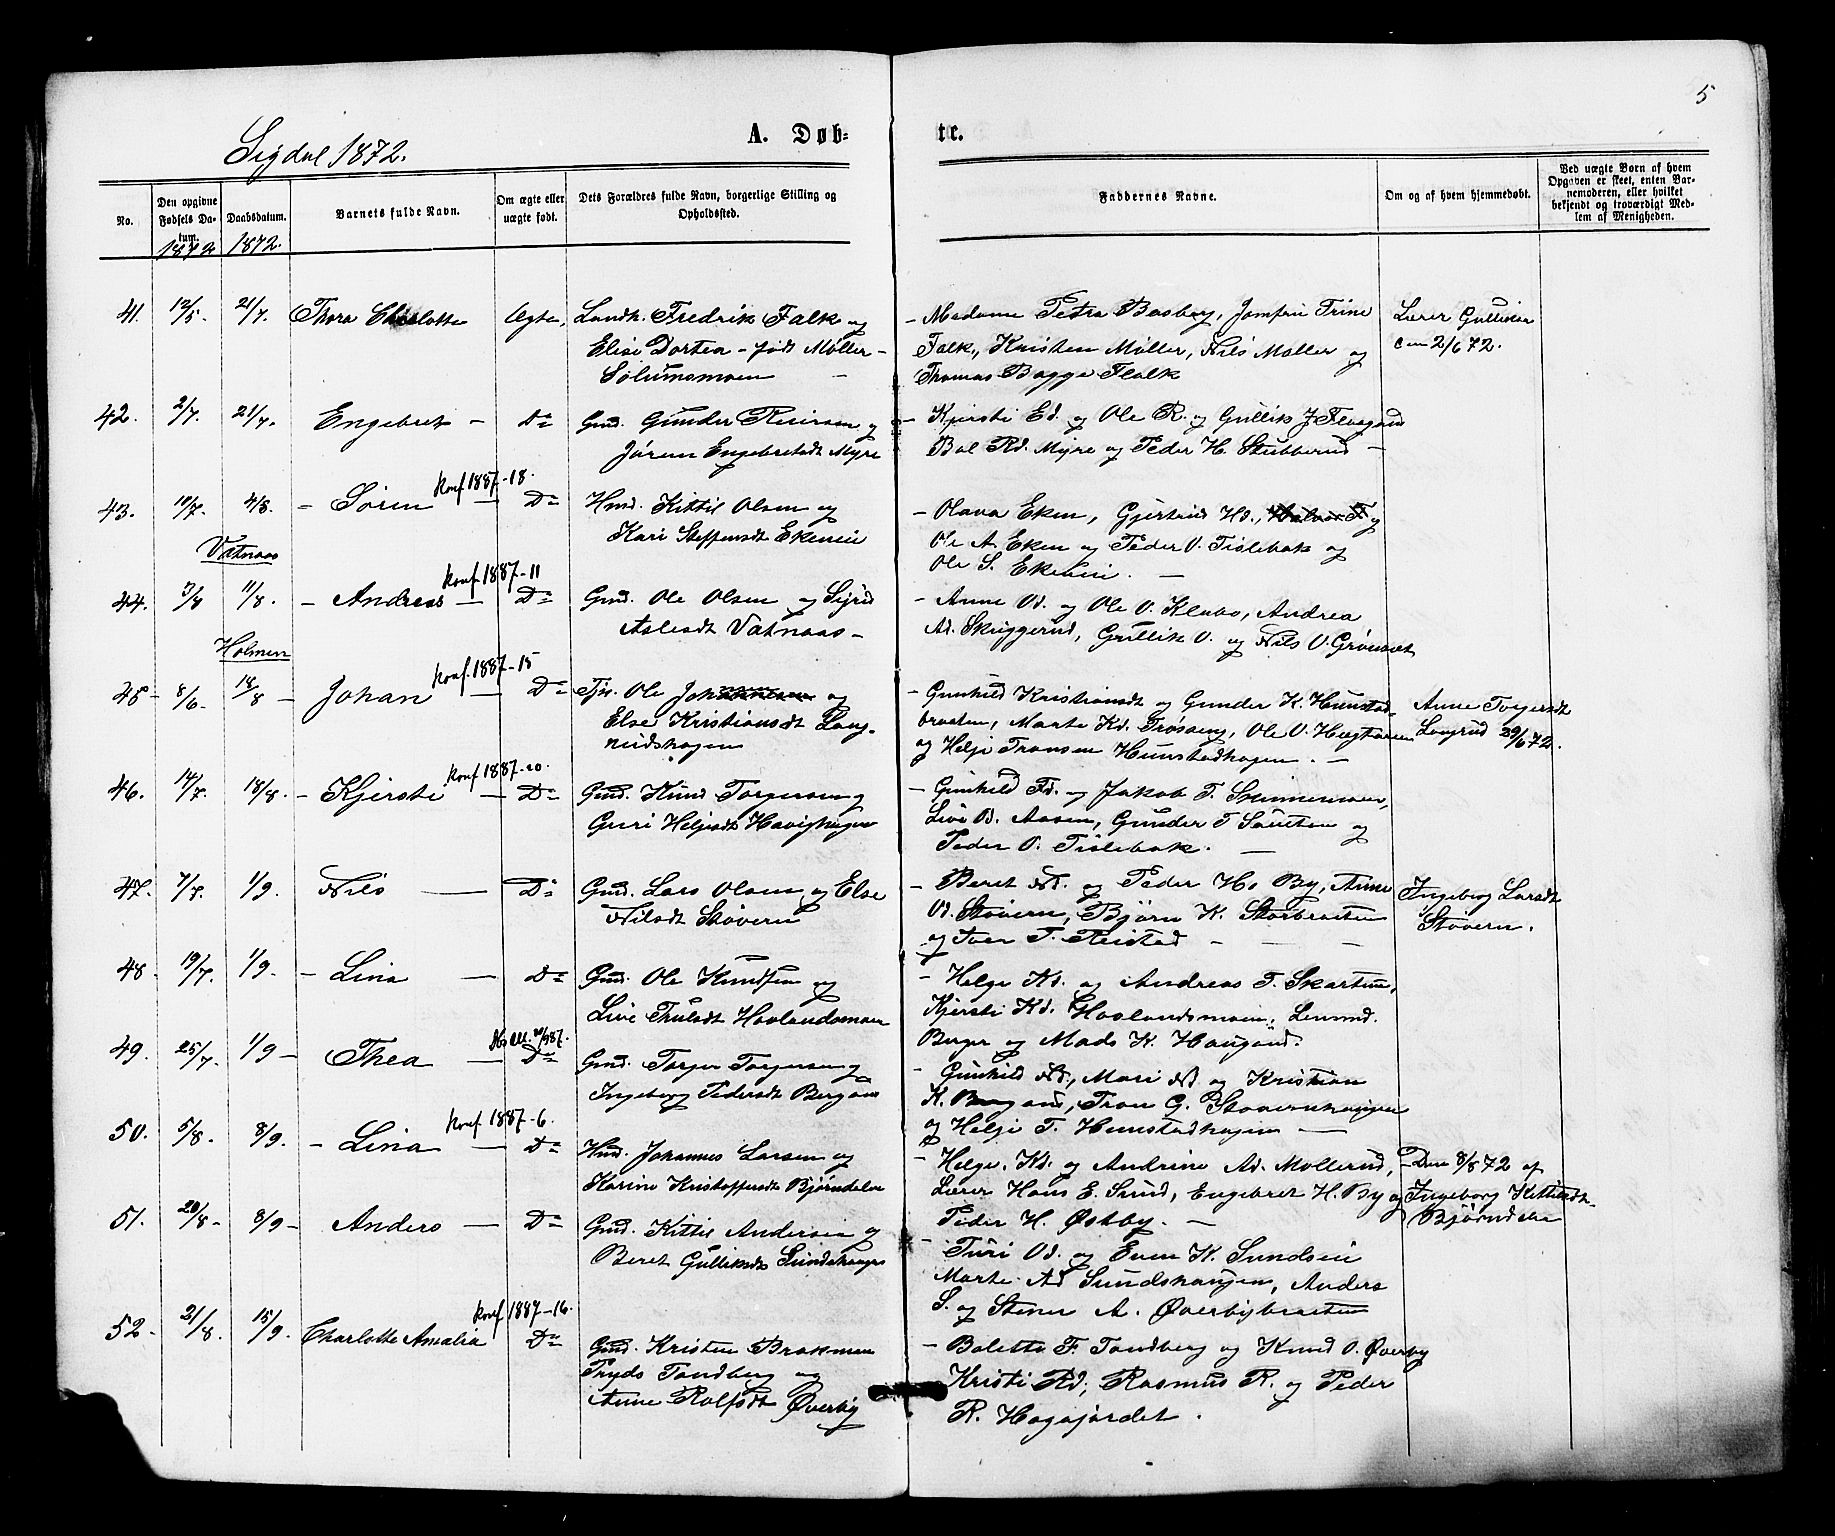 5
Sigdal 1872.
A. Døb-
te.
No.
Den opgivne Fødsels Datum.
1872
Daabsdatum.
1872.
Barnets fulde Navn.
Om ægte eller uægte født.
Dets Forældres fulde Navn, borgerlige Stilling og Opholdssted.
Faddernes Navne.
Om og af hvem hjemmedøbt.
Ved uægte Børn af hvem Opgaven er skeet, enten Barnemoderen, eller hvilket bekjendt og troværdigt Medlem af Menigheden.
41. 12/5. 21/7. Thora Charlotte Ægte,
Landh. Fredrik Falk og
Elise Dortea - født Møller -
Solumsmoen -
- Madame Petra Basberg, Jomfru Trine
Falk, Kristen Møller, Nils Møller og
Thomas Bagge Falk
Lærer Gulliksen
den 2/6 72.
42. 2/7. 21/7. Engebret - Do
Gmd. Gunder Reiersen og
Jøran Engebretsdt Myre
- Kjersti Ed. og Ole R. og Gullik J. Flaagand
Bol Rd. Myre og Peder H. Stubberud -
43. 10/7. 4/8. - Søren - Do
Konf 1887-18.
Hmd. Kittil Olsen og
Kari Steffensdt Ekeneie
- Olava Eken, Gjertrud Hd., og
Ole A. Eken og Peder O. Tislebak og
Ole S. Ekeneie. -
Vatnaas
44. 3/8 11/8. - Andreas - Do
Konf 1887-11
Gmd. Ole Olsen og Sigrid
Aslesdt Vatnaas -
- Anne Od. og Ole O. Klabo, Andrea
Ad. Skuggerud, Gullik O. og Nils O. Grønset
Holmen
45 - 8/6. 18/8 - Johan - Do
Konf 1887-15
Tjn. Ole Johannesen og
Else Kristiansdt Lang-
rudshagen
- Gunhild Kristiansdt og Gunder K. Hunstad-
braaten, Marte Kd. Frøseng, Ole O. Hægtveien
og Helje Transen Hunstadhagen. -
Anne Torgersdt
Langrud 29/6 72.
46. 14/7. 18/8. - Kjersti - Do
Konf 1887-20.
Gmd. Knud Torgersen og
Guri Heljesdt Havighagen
- Gunhild Fd. og Jakob T. Skinnesmoen,
Live O. Aasen, Gunder T. Sauten og
Peder O. Tislebak. -
47. 7/7. 1/9. Nils - Do
Gmd. Lars Olsen og Else
Nilsdt Støvern
- Beret Nd. og Peder Hs By, Anne
Od. Støvern, Bjørn K. Storbraaten
og Iver T. Reistad - - -
Ingeborg Larsdt
Støvern.
48 - 19/7. 1/9. - Lina - Do
Gmd. Ole Knudsen og
Live Trulsdt Hovlandsmoen
- Helge Kd. og Andreas T. Skartum,
Kjersti Kd. Hovlandsmoen, Lensmd.
Berger og Mads K. Haugand.
49. 25/7. 1/9 - Thea - Do
Gmd. Torger Torgersen og
Ingeborg Pedersdt Bergan
- Gunhild Nd., Mari Nd og Kristian
K. Bergan, Tron G. Støvernhaugen
og Helje T. Hunstadhagen -
50. 5/8. 8/9. - Lina - Do
Konf 1887-6.
Hmd. Johannes Larsen og
Karine Kristoffersdt Bjørndalen
- Helge. Kd. og Andrine Ad. Møllerud,
Lærer Hans E. Sund, Engebret H. By og
Peder H. Østby. -
- Den 8/8 72 af
Ingeborg Kittilsdt.
Bjørndalen
51. 20/8 - 8/9 - Anders - Do
Gmd. Kittil Andersen og
Beret Gulliksdt Sundshaugen
- Turi Od. og Even K. Sundseie
Marte. Ad Sundshaugen, Anders
S. og Stener A. Øverbybraaten
52 - 21/8. 15/9. Charlotte Amalia Do
Konf 1887-16.
Gmd. Kristen Brakman
Fryds Tandberg og
Anne Rolfsdt Øverby
- Bolette F. Tandberg og Knud O. Øverby
Kristi Rd, Rasmus R. og Peder
R. Hagafjordet.